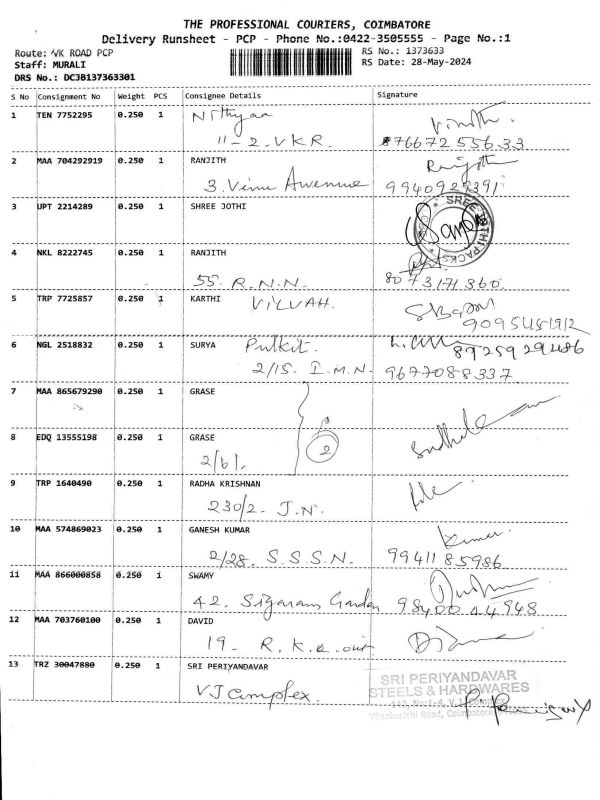 THE PROFESSIONAL COURIERS, COIMBATORE
Delivery Runsheet - PCP - Phone No.:0422-3505555 - Page No.:1
Route: VK ROAD PCP
RS No.: 1373633
Staff: MURALI
RS Date: 28-May-2024
DRS No.: DCJB137363301
S No Consignment No Weight PCS Consignee Details Signature
1 TEN 7752295 0.250 1 Nithyaa
11-2. V.K.R.
2 MAA 704292919 0.250 1 RANJITH
3. Vinu Awenue
3 UPT 2214289 0.250 1 SHREE JOTHI
4 NKL 8222745 0.250 1 RANJITH
55. R.N.N. 8073171360.
5 TRP 7725857 0.250 1 KARTHI
6 NGL 2518832 0.250 1 SURYA Pulkit.
2/15. I.M.N- 9677088337.
7 MAA 865679290 0.250 1 GRASE
2
8 EDQ 13555198 0.250 1 GRASE
9 TRP 1640490 0.250 1 RADHA KRISHNAN
230/2. J.N.
10 MAA 574869023 0.250 1 GANESH KUMAR Kumar.
2/28. S.S.S.N. 9941185986
11 MAA 866000858 0.250 1 SWAMY
42. Siyaram Garden 98400 44948
12 MAA 703760100 0.250 1 DAVID
19- R.K.
13 TRZ 30047880 0.250 1 SRI PERIYANDAVAR
VJ Complex.
SRI PERIYANDAVAR
STEELS & HARDWARES
Vilankurichi Road,